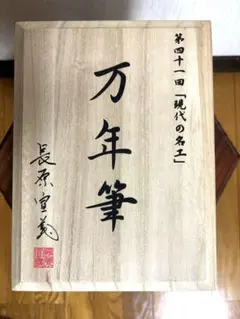 第四十一回「現代の名工」
万年筆
長原宣義